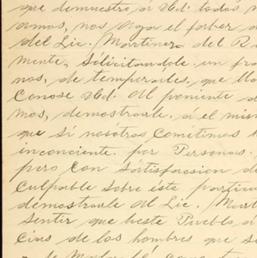 que demuestro a Ud. todos
amos, nos haga el fabor
del Lic. Martinez del R
mente, Solicitandole un pra
nos, de temporales, que lla
Canose Ud. Al poniente
mos, demostrarle, a el mis
que si nosotros Cometimos
inconciente. por Personas.
pero Con Sattisfassion de
Culpable sobre éste particu
demostrarle Al Lic. Mart
Sentir que heste Pueblo, a
Cius de los hombres que s